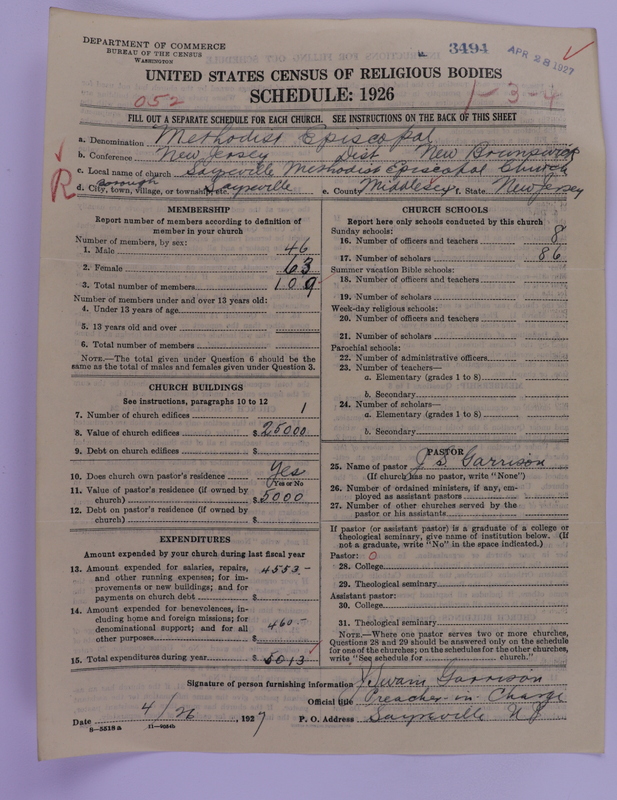 DEPARTMENT OF COMMERCE
BUREAU OF THE CENSUS
WASHINGTON
3494
APR 28 1927
UNITED STATES CENSUS OF RELIGIOUS BODIES
SCHEDULE: 1926
052
1-3-4
FILL OUT A SEPARATE SCHEDULE FOR EACH CHURCH. SEE INSTRUCTIONS ON THE BACK OF THIS SHEET
a. Denomination Methodist Episcopal
b. Conference New Jersey Dist New Brunswick
c. Local name of church Sayreville Methodist Episcopal Church
R
borough
d. City, town, village, or township, etc. Sayreville e. County Middlesex f. State New Jersey
MEMBERSHIP
Report number of members according to definition of
member in your church
Number of members, by sex:
1. Male 46
2. Female 63
3. Total number of members 109
Number of members under and over 13 years old:
4. Under 13 years of age
5. 13 years old and over
6. Total number of members
NOTE.—The total given under Question 6 should be the
same as the total of males and females given under Question 3.
CHURCH BUILDINGS
See instructions, paragraphs 10 to 12
7. Number of church edifices 1
8. Value of church edifices $ 25000
9. Debt on church edifices $
10. Does church own pastor's residence Yes
(Yes or No
11. Value of pastor's residence (if owned by
church) $ 5000
12. Debt on pastor's residence (if owned by
church) $
EXPENDITURES
Amount expended by your church during last fiscal year
13. Amount expended for salaries, repairs, 4553.-
and other running expenses; for im-
provements or new buildings; and for
payments on church debt $
14. Amount expended for benevolences, in-
cluding home and foreign missions; for
denominational support; and for all 460.-
other purposes $
15. Total expenditures during year $ 5013
CHURCH SCHOOLS
Report here only schools conducted by this church
Sunday schools:
16. Number of officers and teachers 8
17. Number of scholars 86
Summer vacation Bible schools:
18. Number of officers and teachers
19. Number of scholars
Week-day religious schools:
20. Number of officers and teachers
21. Number of scholars
Parochial schools:
22. Number of administrative officers
23. Number of teachers—
a. Elementary (grades 1 to 8)
b. Secondary
24. Number of scholars—
a. Elementary (grades 1 to 8)
b. Secondary
PASTOR
25. Name of pastor J S. Garrison
(If church has no pastor, write "None")
26. Number of ordained ministers, if any, em-
ployed as assistant pastors
27. Number of other churches served by the
pastor or his assistants
If pastor (or assistant pastor) is a graduate of a college or
theological seminary, give name of institution below. (If
not a graduate, write "No" in the space indicated.)
Pastor: 0
28. College
29. Theological seminary
Assistant pastor:
30. College
31. Theological seminary
NOTE.—Where one pastor serves two or more churches,
Questions 28 and 29 should be answered only on the schedule
for one of the churches; on the schedules for the other churches,
write "See schedule for church."
Signature of person furnishing information J. Swain Garrison
Official title Preacher-in-Charge
Date 4/26, 1927 P. O. Address Sayreville N J
8-5518 a